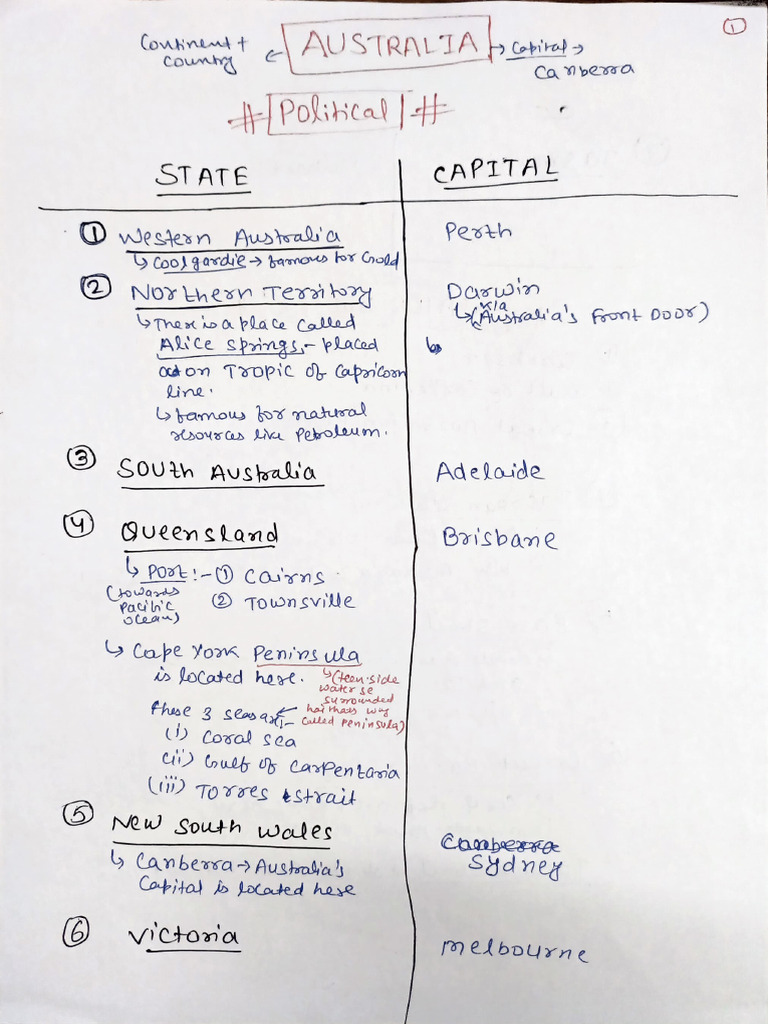 ①
Continent + country ← AUSTRALIA → Capital → Canberra
# Political #
STATE CAPITAL
① Western Australia Perth
↳ Coolgardie → famous for Gold
② Northern Territory Darwin
↳ (Australia's Front Door)
k/a
↳ There is a place called
Alice springs, - placed
on Tropic of Capricorn
line.
↳ famous for natural
resources like Petroleum.
③ South Australia Adelaide
④ Queensland Brisbane
↳ Port :- ① Cairns
(towards Pacific ocean) ② Townsville
↳ Cape York Peninsula
is located here. ↳ (teen side
water se
surrounded
hai thats way
called Peninsula)
these 3 seas are :-
(i) Coral sea
(ii) Gulf of Carpentaria
(iii) Torres strait
⑤ New South Wales Canberra
Sydney
↳ Canberra → Australia's
Capital is located here
⑥ Victoria Melbourne